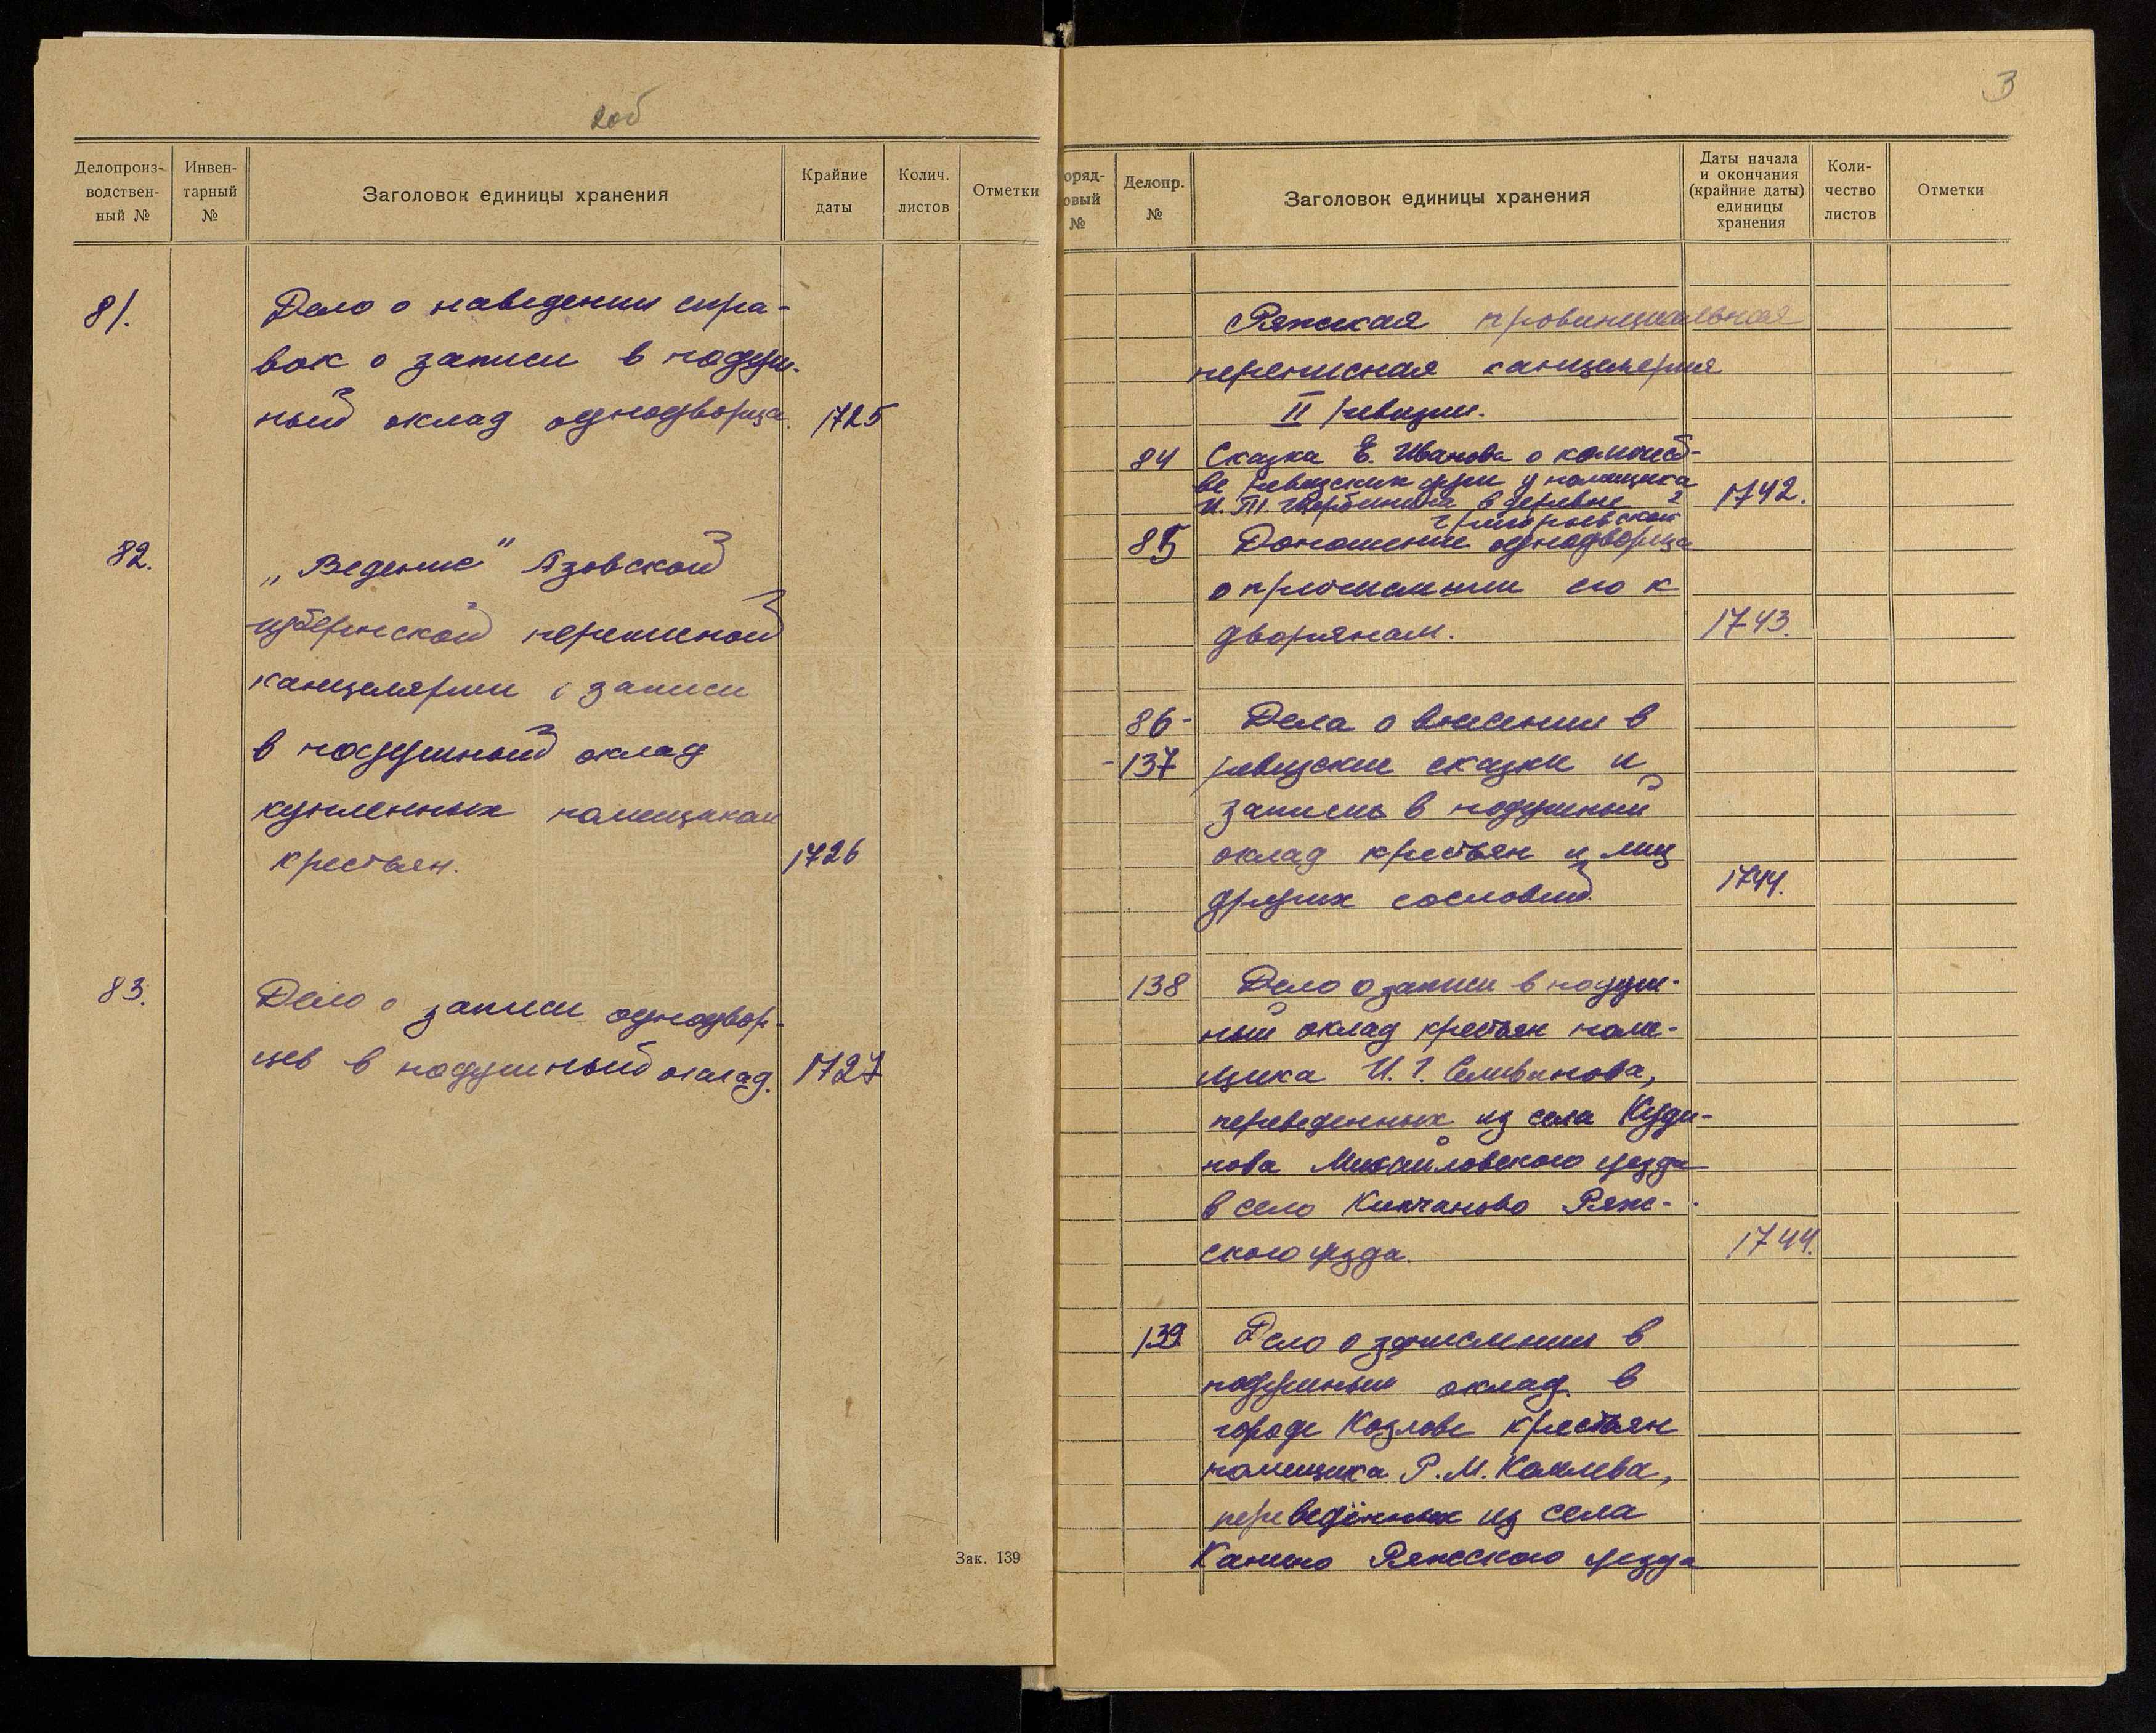 2об
Делопроиз-
водствен-
ный №
Инвен-
тарный
№
Заголовок единицы хранения
Крайние
даты
Колич.
листов
Отметки
81.
Дело о наведении спра-
вок о записи в подуш-
ный оклад однодворца.
1725
82.
„Ведение" Азовской
губернской переписной
канцелярии о записи
в подушный оклад
купленных помещикам
крестьян.
1726
83.
Дело о записи однодвор-
цев в подушный оклад.
1727
Зак. 139
3
оряд-
овый
№
Делопр.
№
Заголовок единицы хранения
Даты начала
и окончания
(крайние даты)
единицы
хранения
Коли-
чество
листов
Отметки
Ряжская провинциальная
переписная канцелярия
II ревизии.
84
Сказка Е. Иванова о количест-
ве ревизских душ у помещика
в деревне
Григорьевской
1742.
85
Доношение однодворца
о причислении его к
дворянам.
1743.
86-
-137
Дела о внесении в
ревизские сказки и
запись в подушный
оклад крестьян и лиц
других сословий.
1744.
138
Дело о записи в подуш-
ный оклад крестьян поме-
щика И. Г. Селиванова,
переведенных из села Куди-
нова Михайловского уезда
в село Кипчаково Ряж-
ского уезда.
1744.
139
Дело о зачислении в
подушный оклад в
городе Козлове крестьян
помещика Р. М. Кошлева,
переведённых из села
Канино Ряжского уезда